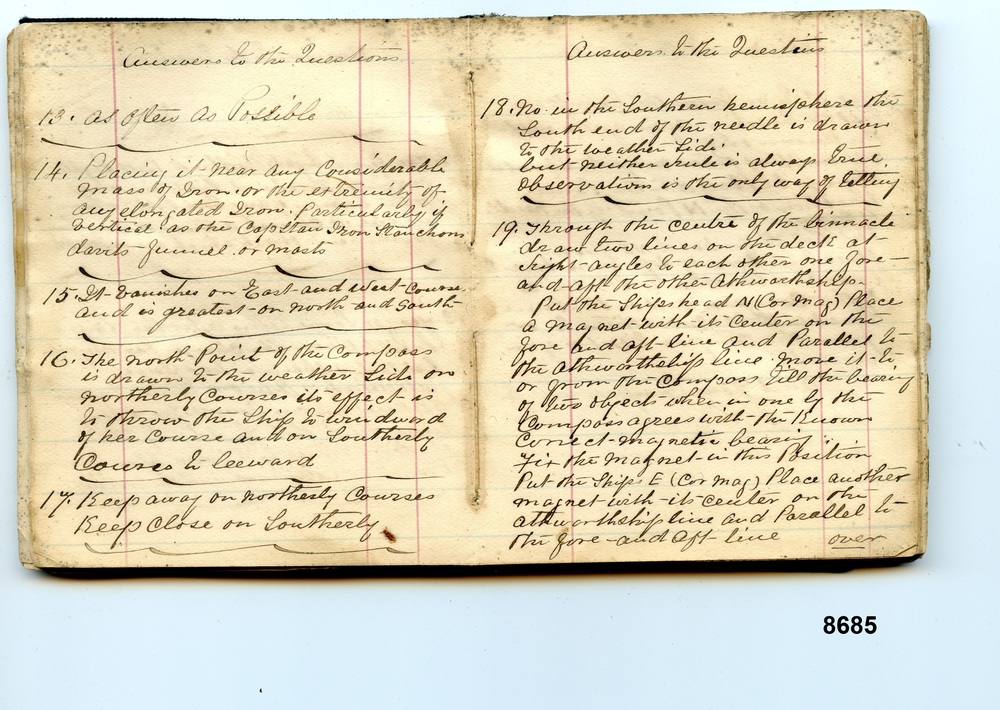 Answers to the Questions
13. As often as Possible
14. Placing it near any Considerable
mass of Iron. or the extremity of
any elongated Iron. Particularly if
vertical. as the Capstan Iron Stanchons
davits funnel. or masts
15. It vanishes on East and West Courses
and is greatest on north and South
16. The north Point of the Compass
is drawn to the weather Side on
northerly Courses its effect is
to throw the Ship to windward
of her Course and on Southerly
Courses to leeward
17. Keep away on northerly Courses
Keep Close on Southerly
Answers to the Questions
18. No in the Southern hemisphere the
South end of the needle is drawn
to the weather Side
but neither rule is always true.
Observations is the only way of telling
19. Through the centre of the binnacle
draw two lines on the deck at
right-angles to each other one fore-
and-aft the other Athwartship.
Put the Ships head N (Cor mag) Place
a magnet with its center on the
fore and aft line and Parallel to
the athwartship line. move it to
or from the Compass till the bearing
of two objects when in one by the
Compass agrees with the Known
Correct magnetic bearing
Fix the magnet in this Position
Put the Ships E (Cor mag) Place another
magnet with its center on the
athwartship line and Parallel to
the fore-and aft line over
8685